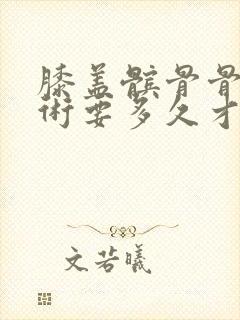 膝盖髌骨骨
术要多久才
文若曦